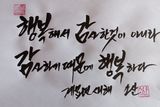 행복해서 감사한것이 아니라
감사하기 때문에 행복하다
새해